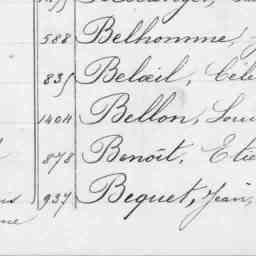 588 Belhomme, J
835 Belœil, Céle
1404 Bellon, Loui
878 Benoît, Etie
937 Bequet, Jean,